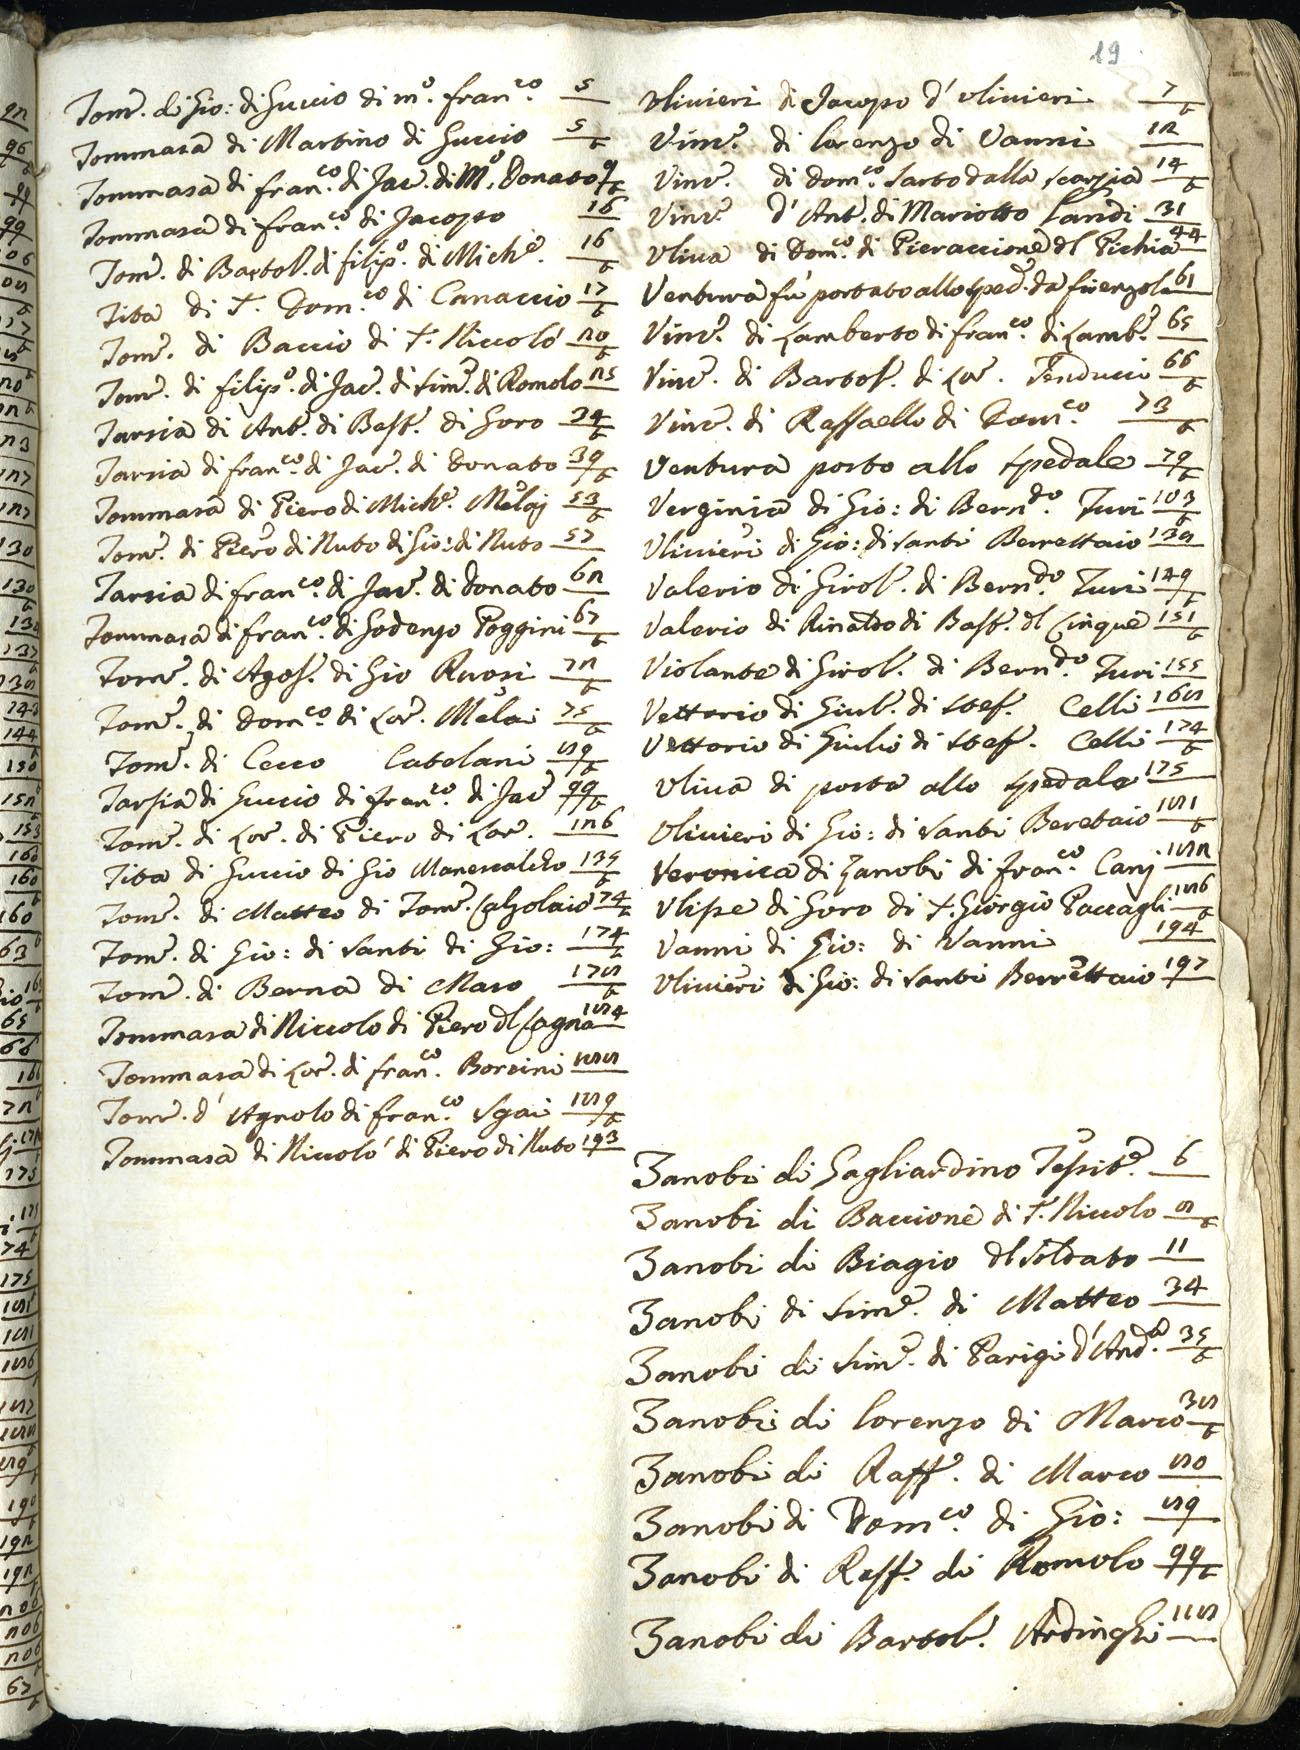 19
Tom.e di Gio: di Guccio di m.o fran.co 5
Tommasa di Martino di Guccio 5 t
Tommasa di fran.co di Jac. di M.o Donato 9 t
Tommasa di fran.co di Jacopo 16
Tom.e di Bartol. di filip.o di Mich.e 16 t
Tita di S. Dom.co di Canaccio 17 t
Tom.e di Baccio di S. Niccolò 20 t
Tom.e di filip.o di Jac. di Sim.e di Romolo 25
Tarsia di Ant. di Bast. di Goro 34 t
Tarsia di fran.co di Jac. di Donato 39 t
Tommasa di Piero di Mich.e Melaj 53 t
Tom.e di Piero di Nuto di Gio: di Nuto 57
Tarsia di fran.co di Jac. di Donato 62 t
Tommasa di fran.co di Godenzo Poggini 67 t
Tom.e di Agos. di Gio Ruosi 72 t
Tom.e di Dom.co di Lor. Melai 75 t
Tom.e di Cecco Catelani 89 t
Tarsia di Guccio di fran.co di Jac 99 t
Tom.e di Lor. di Piero di Lor. 126
Tita di Guccio di Gio Manescalcho 135 t
Tom.e di Matteo di Tom.e Calzolaio 74 t
Tom.e di Gio: di Santi di Gio: 174 t
Tom.e di Berna di Maso 178 t
Tommasa di Niccolo di Piero dl Cagna 184
Tommasa di Lor. di fran.co Borsini 188
Tom.e d' Agnolo di fran.co Sgai 189 t
Tommasa di Niccolò di Piero di Nuto 193
Ulivieri di Jacopo d' Ulivieri 7 t
Vinc.o di Lorenzo di Vanni 12
Vinc. di Dom.co Sarto dalla Scarpia 14 t
Vinc. d' Ant. di Mariotto Landi 31
Uliva di Dom.co di Pieraccione dl Pichia 44
Ventura fù portato allo sped. da fiorenzola 61
Vinc. di Lamberto di fran.co di Lamb. 65
Vinc. di Bartol. di Lor. Fenducci 66 t
Vinc. di Raffaello di Dom.co 73 t
Ventura porto allo spedale 79 t
Verginia di Gio: di Bern.do Turi 103 t
Ulivieri di Gio: di Santi Berrettaio 138
Valerio di Girol. di Bern.do Turi 149 t
Valerio di Rinaldo di Bast. dl Cinque 151 t
Violante di Girol. di Bern.do Turi 155
Vettorio di Giul. di Stef. Celli 168
Vettorio di Giulio di Stef. Celli 174 t
Uliva di porta allo spedale 175
Ulivieri di Gio: di Santi Beretaio 181 t
Veronica di Zanobi di fran.co Canj 182
Ulisse di Goro di S. Giorgio Paccagli 186 t
Vanni di Gio: di Vanni 194
Ulivieri di Gio: di Santi Berrettaio 197
Zanobi di Gagliardino Tessit.e 6
Zanobi di Baccione di S. Niccolo 8 t
Zanobi di Biagio dl Soldato 11
Zanobi di Sim.e di Matteo 34
Zanobi di Sim.e di Parigi d' And.a 35 t
Zanobi di Lorenzo di Marco 38 t
Zanobi di Raff. di Marco 80
Zanobi di Dom.co di Gio: 89
Zanobi di Raff. di Romolo 99 t
Zanobi di Bartol. Ardinghi 118